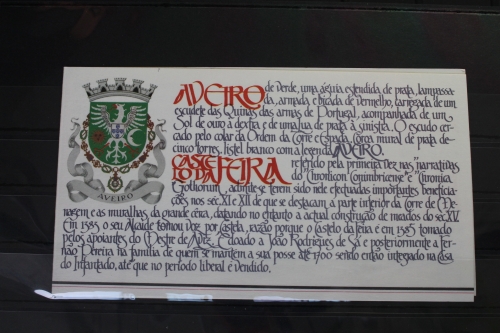 AVEIRO de verde, uma águia estendida de prata, lampassa-
da, armada e bicada de vermelho, carregada de um
escudete das Quinas das armas de Portugal, acompanhada de um
Sol de ouro à dextra e de uma lua de prata à sinistra. O escudo cer-
cado pelo colar da Ordem da Torre e Espada. Coroa mural de prata de
cinco torres. Listel branco com a legenda AVEIRO.
CASTE
LO DA FEIRA referido pela primeira vez nas "narrativas
do "Chronicon Conimbricense" e "Chronica
Gothorum", admite-se terem sido nele efectuadas importantes beneficia-
ções nos séc. XI e XII de que se destacam a parte inferior da Torre de Me-
nagem e as muralhas da grande cêrca, datando no entanto a actual construção de meados do séc. XV.
Em 1383 o seu Alcaide tomou voz por Castela, razão porque o Castelo da Feira e em 1385 tomado
pelos apoiantes do Mestre de Avis. É doado a João Rodrigues de Sá e posteriormente a Fer-
não Pereira na família de quem se mantem a sua posse até 1700 sendo então integrado na Casa
do Infantado, até que no período liberal é vendido.
AVEIRO